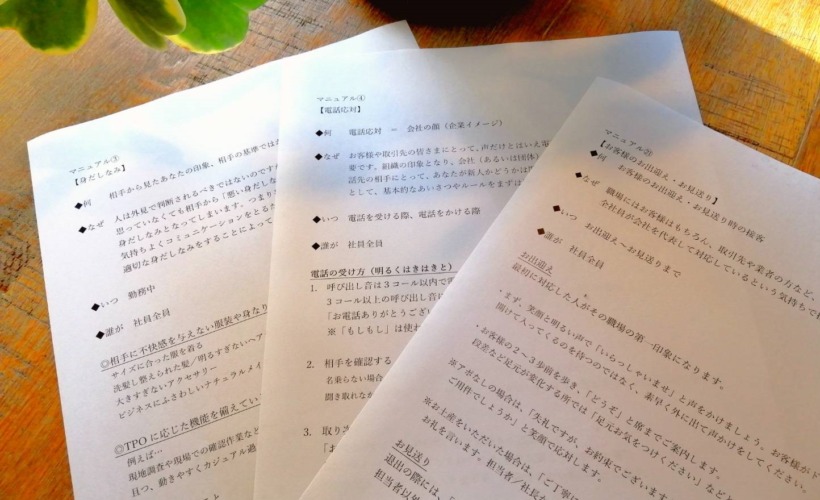 マニュアル③
【身だしなみ】
◆何　相手から見たあなたの印象、相手の基準では
◆なぜ　人は外見で判断されるべきではないのですが
思っていなくても相手から「悪い身だしな
身だしなみとなってしまいます。つまり
気持ちよくコミュニケーションをとるた
適切な身だしなみをすることによって
◆いつ　勤務中
◆誰が　社員全員
◎相手に不快感を与えない服装や身なり
サイズに合った服を着る
洗髪し整えられた髪／明るすぎないヘア
大きすぎないアクセサリー
ビジネスにふさわしいナチュラルメイ
◎TPOに応じた機能を備えてい
例えば…
現地調査や現場での確認作業など
目つ、動きやすくカジュアル過
マニュアル④
【電話応対】
◆何　電話応対　＝　会社の顔（企業イメージ）
◆なぜ　お客様や取引先の皆さまにとって、声だけとはいえ電
要です。組織の印象となり、会社（あるいは団体）
話先の相手にとって、あなたが新人かどうかは
として、基本的なあいさつやルールをまずは
◆いつ　電話を受ける際、電話をかける際
◆誰が　社員全員
電話の受け方（明るくはきはきと）
1.　呼び出し音は３コール以内で
３コール以上の呼び出し音に
「お電話ありがとうござい
※「もしもし」は使わ
2.　相手を確認する
名乗らない場合
聞き取れなか
3.　取り
「お
マニュアル㉑
【お客様のお出迎え・お見送り】
◆何　お客様のお出迎え・お見送り時の接客
◆なぜ　職場にはお客様はもちろん、取引先や業者の方など、
全社員が会社を代表して対応しているという気持ちで
◆いつ　お出迎え～お見送りまで
◆誰が　社員全員
お出迎え
最初に対応した人がその職場の第一印象になります。
・まず、笑顔と明るい声で「いらっしゃいませ」と声をかけましょう。お客様がド
開けて入ってくるのを待つのではなく、素早く外に出て声かけをしてください。
・お客様の２～３歩前を歩き、「どうぞ」と席までご案内します。
段差など足元が変化する所では「足元お気をつけください」など
※アポなしの場合は、「失礼ですが、お約束でございま
ご用件でしょうか」と笑顔で応対します。
※お土産をいただいた場合は、「ご丁寧に
お礼を言います。担当者／社長
お見送り
退出の際には、「
担当者以外